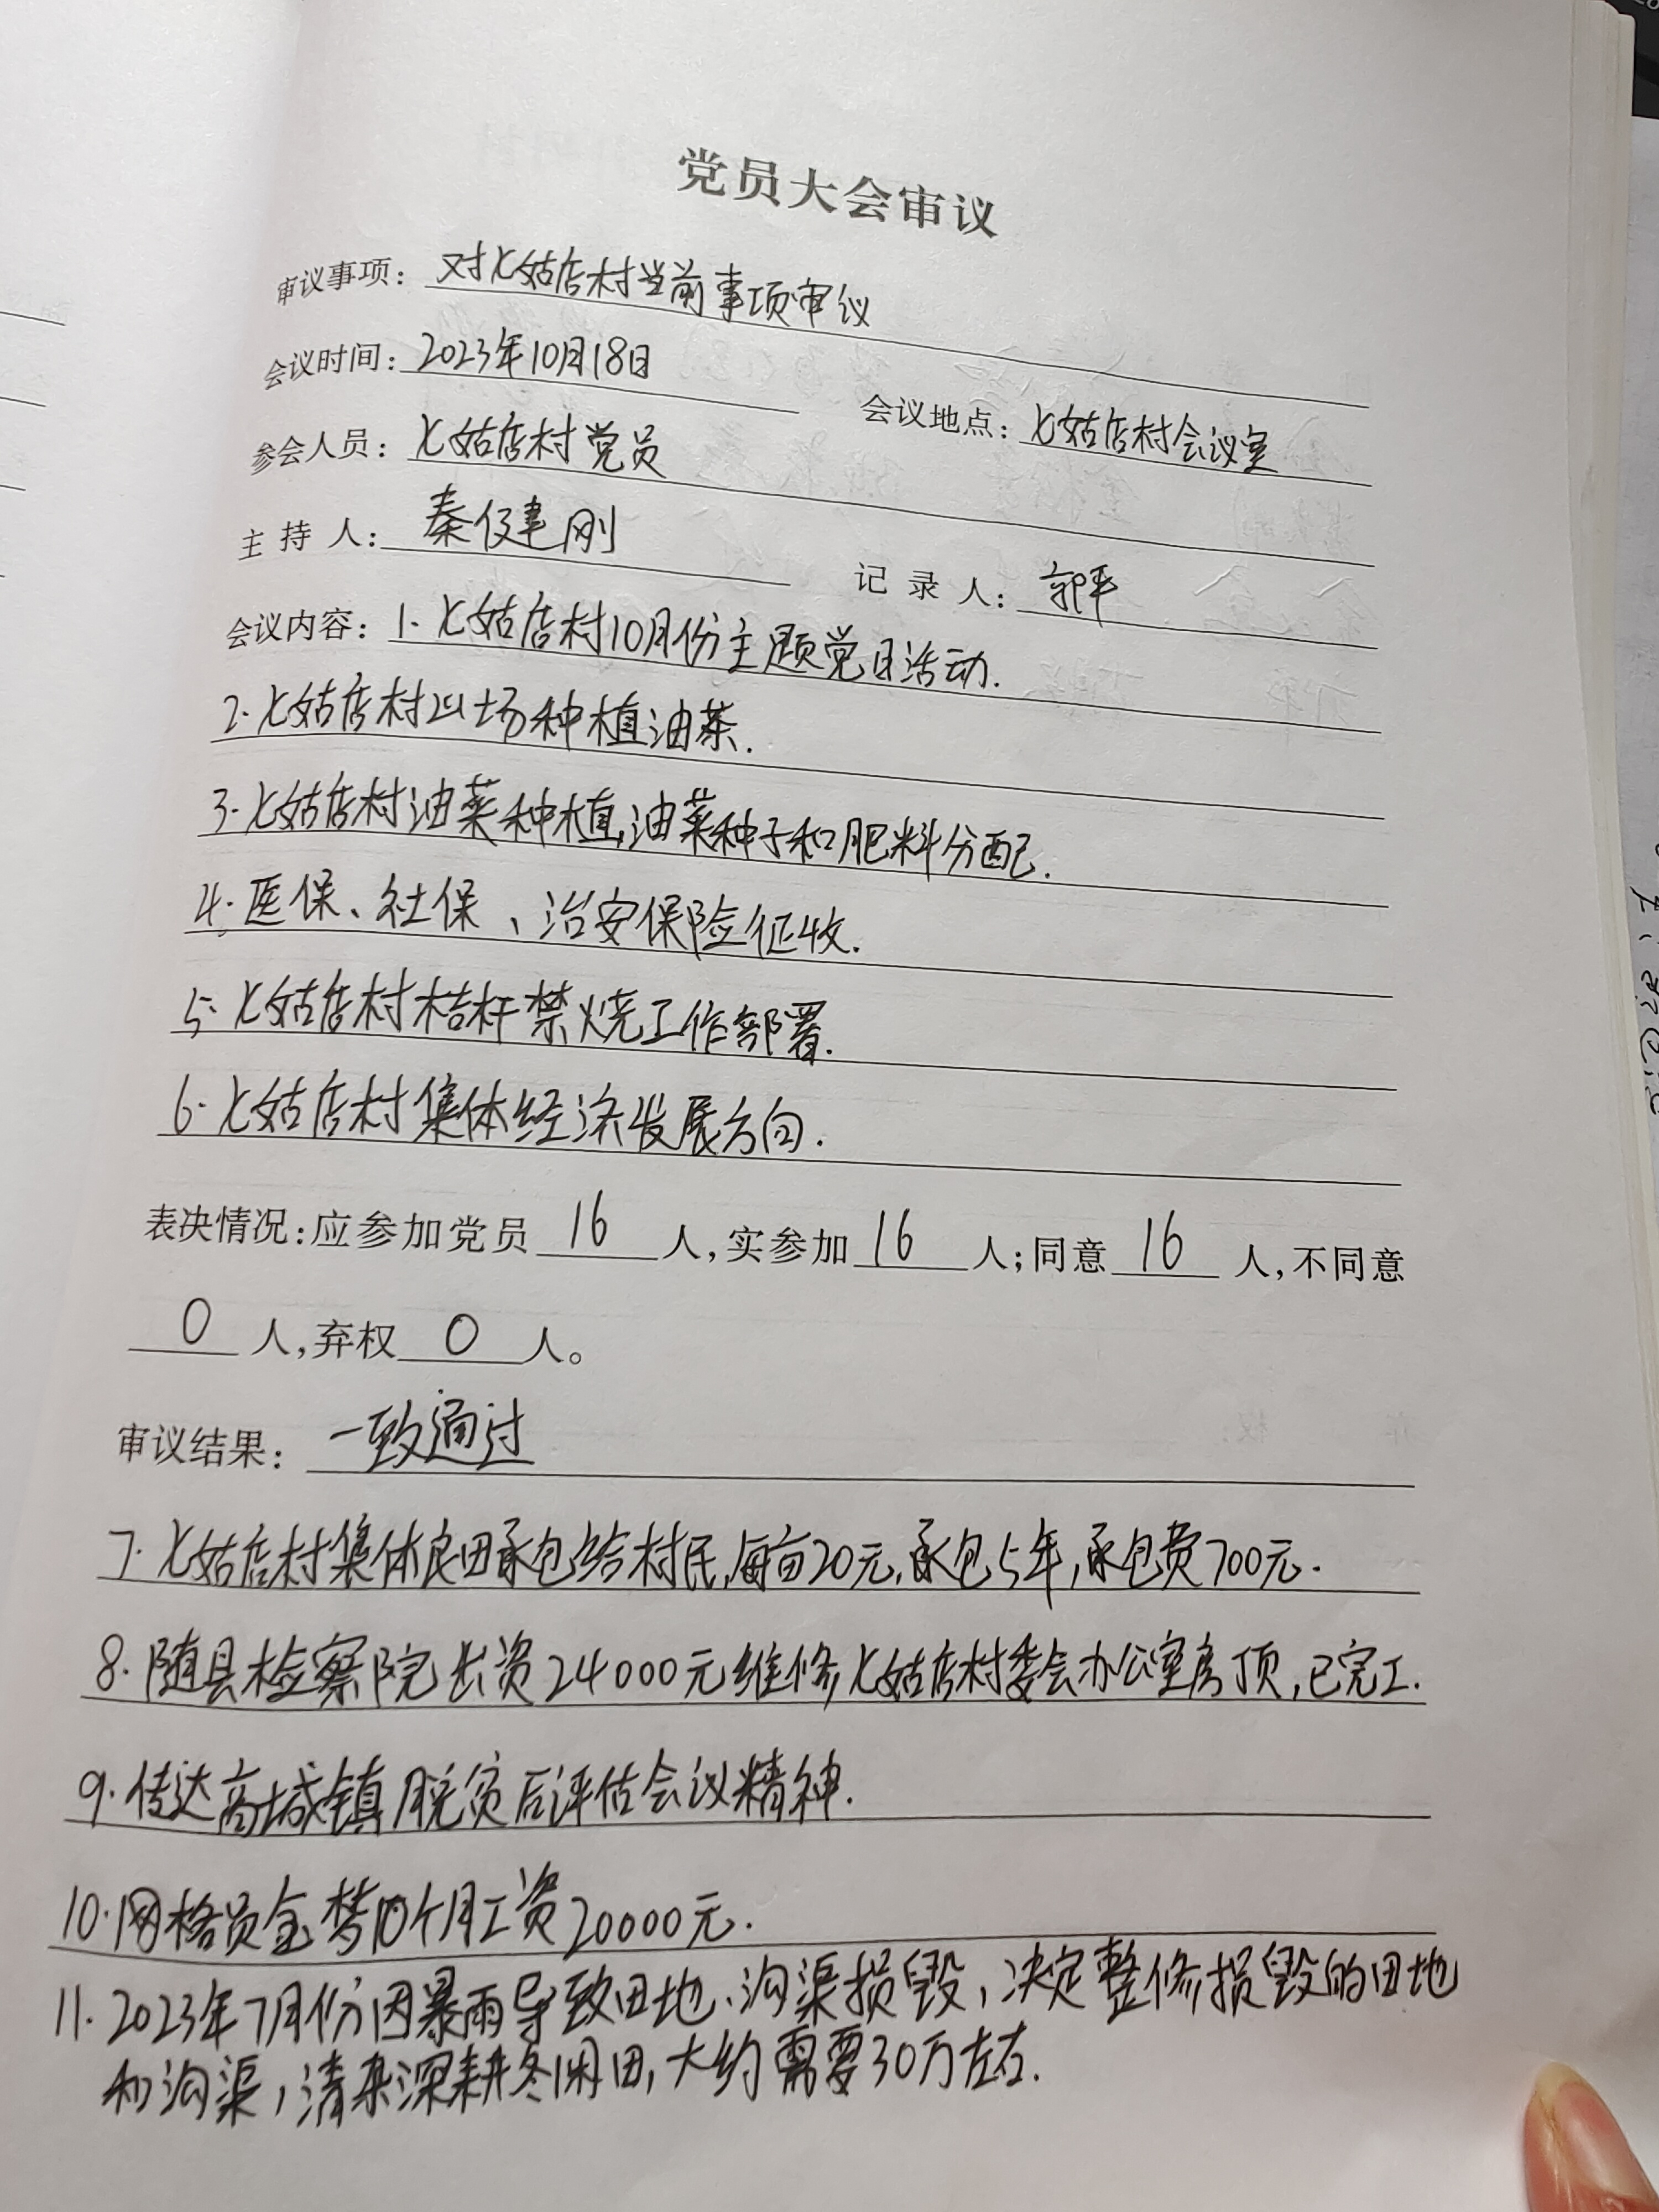 党员大会审议
审议事项：对七姑店村当前事项审议
会议时间：2023年10月18日 会议地点：七姑店村会议室
参会人员：七姑店村党员
主持人：秦建刚 记录人：郭平
会议内容：1.七姑店村10月份主题党日活动.
2.七姑店村山场种植油茶.
3.七姑店村油菜种植,油菜种子和肥料分配.
4.医保、社保、治安保险征收.
5.七姑店村桔杆禁烧工作部署.
6.七姑店村集体经济发展方向.
表决情况:应参加党员16人,实参加16人;同意16人,不同意
0人,弃权0人。
审议结果：一致通过
7.七姑店村集体良田承包给村民,每亩20元,承包5年,承包费700元.
8.随县检察院出资24000元维修七姑店村委会办公室房顶,已完工.
9.传达高城镇脱贫后评估会议精神.
10.网格员金梦10个月工资20000元.
11.2023年7月份因暴雨导致田地、沟渠损毁,决定整修损毁的田地
和沟渠,清杂深耕冬闲田,大约需要30万左右.